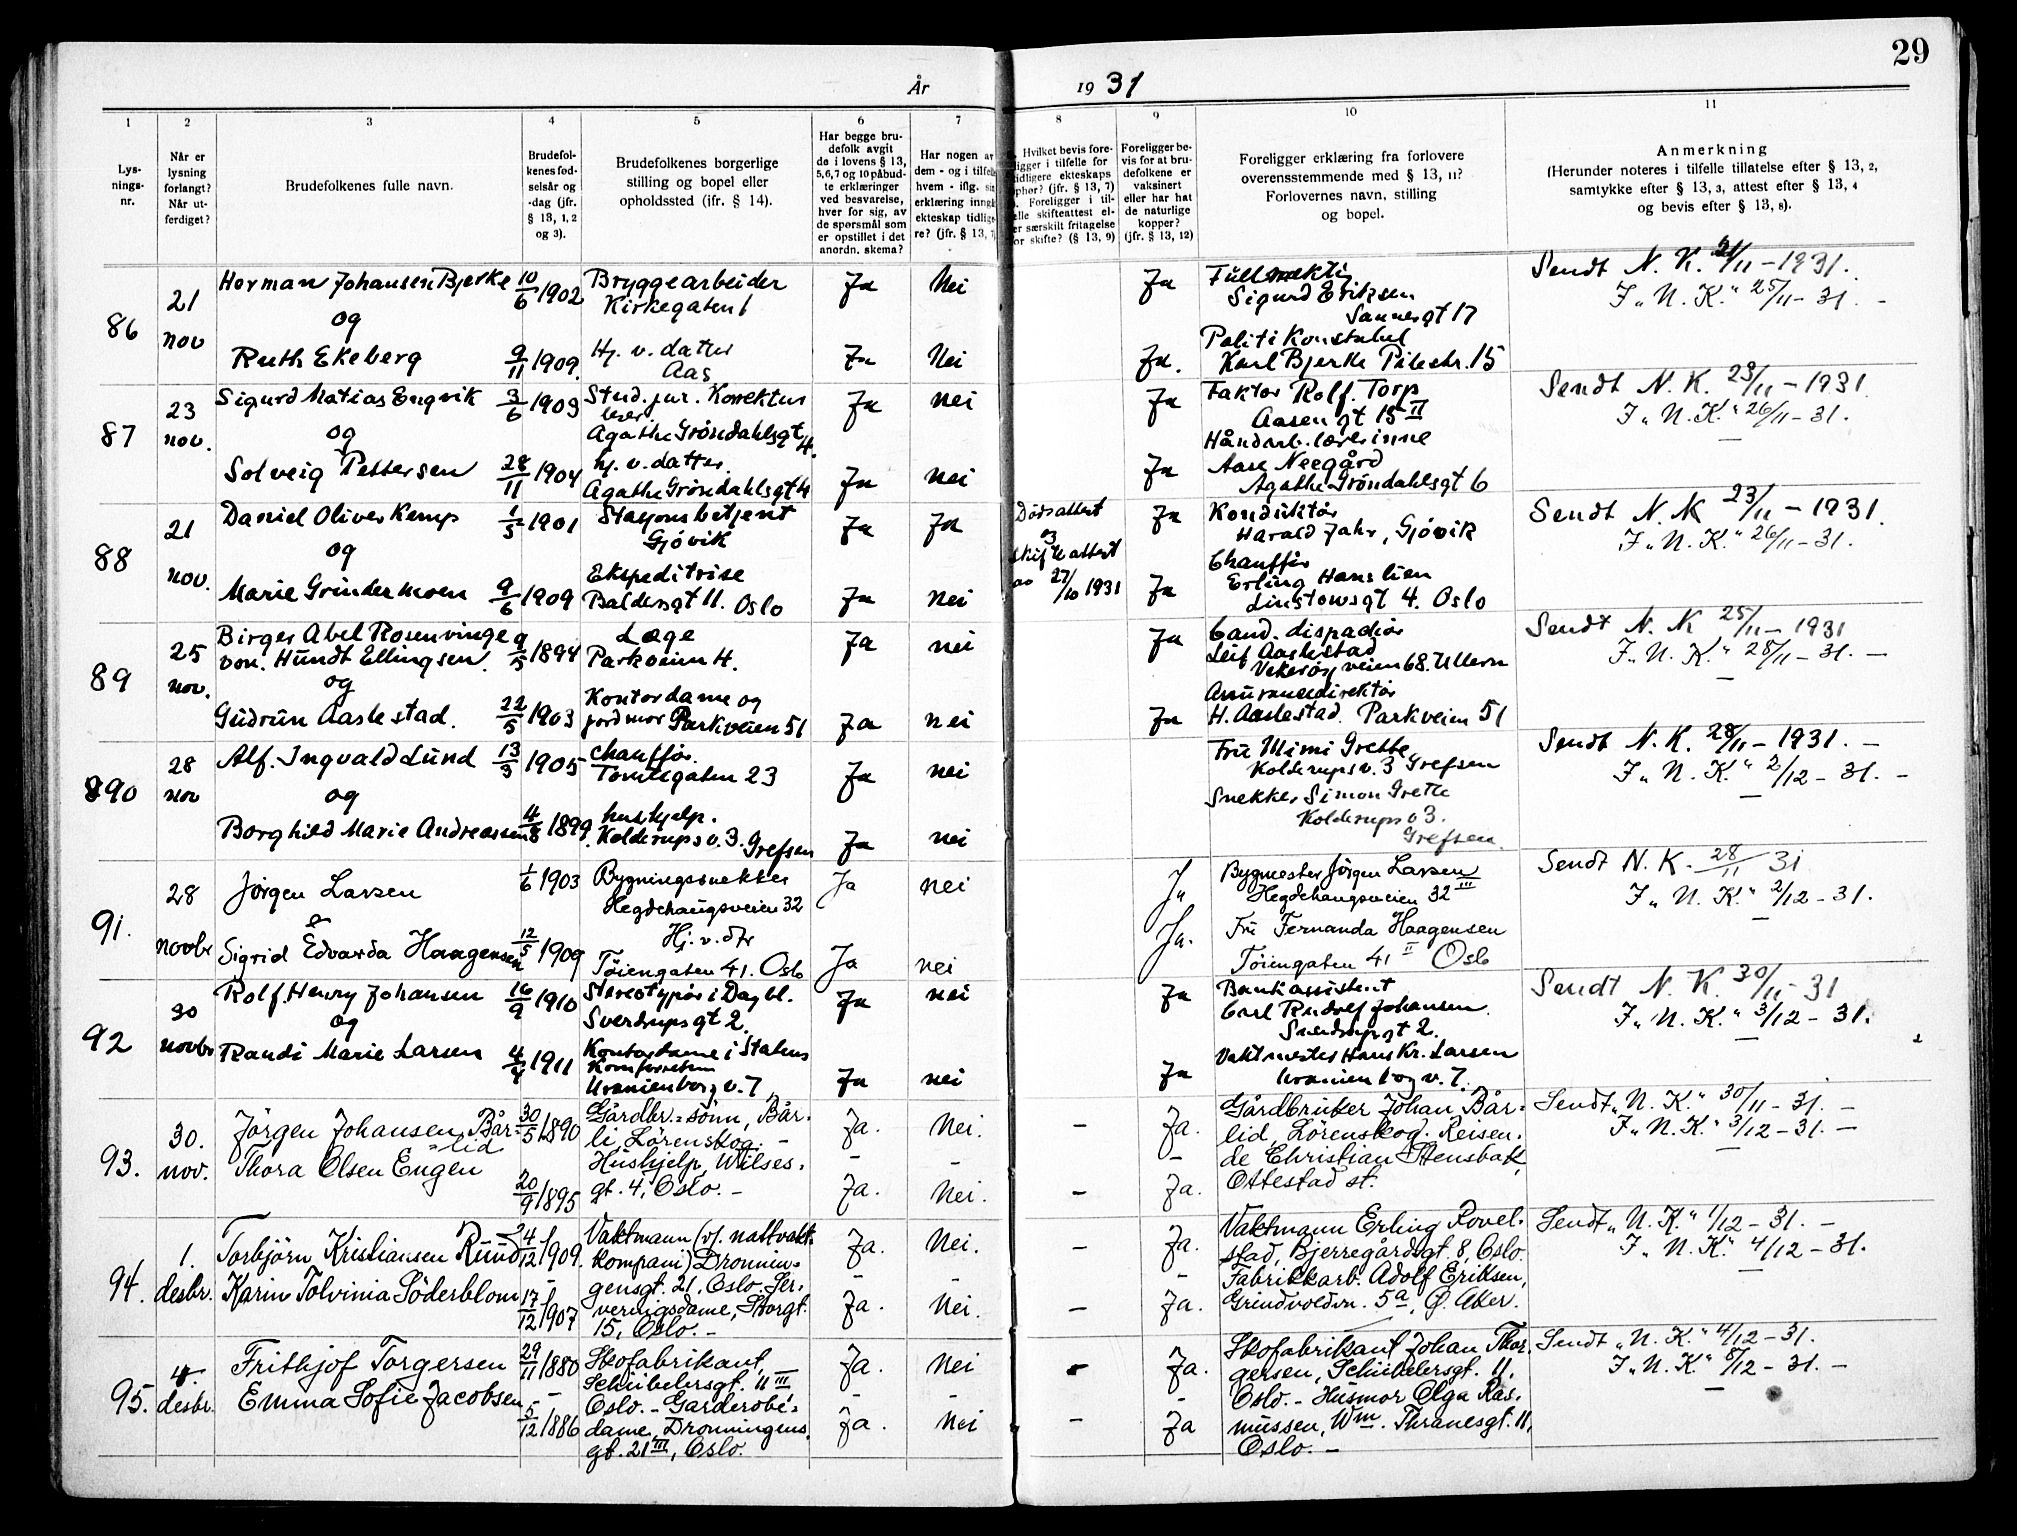 29
År 1931
1 2 3 4 5 6 7 8 9 10 11
Lys-
nings-
nr.
Når er
lysning
forlangt?
Når ut-
ferdiget?
Brudefolkenes fulle navn.
Brudefol-
kenes fød-
selsår og
-dag (jfr.
§ 13, 1, 2
og 3).
Brudefolkenes borgerlige
stilling og bopel eller
opholdssted (ifr. § 14).
Har begge bru-
defolk avgit
de i lovens § 13,
5,6,7 og 10 påbud-
te erklæringer
ved besvarelse,
hver for sig, av
de spørsmål som
er opstillet i det
anordn. skema?
Har nogen av
dem - og i tilfelle
hvem - iflg. sin
erklæring inngått
ekteskap tidlige-
re? (jfr. § 13, 7)
Hvilket bevis fore-
ligger i tilfelle for
tidligere ekteskaps
ophør? (jfr. § 13, 7)
Foreligger i til-
felle skifteattest el-
ler særskilt fritagelse
for skifte? (§ 13, 9)
Foreligger be-
vis for at bru-
defolkene er
vaksinert
eller har hat
de naturlige
kopper?
(jfr. § 13, 12)
Foreligger erklæring fra forlovere
overensstemmende med § 13, 11?
Forlovernes navn, stilling
og bopel.
Anmerkning
(Herunder noteres i tilfelle tillatelse efter § 13, 2,
samtykke efter § 13, 3, attest efter § 13, 4
og bevis efter § 13, 8).
86
21
nov
Herman Johansen Bjerke
og
Ruth Ekeberg
10/6 1902
9/11 1909.
Bryggearbeider
Kirkegaten 1
Hj. v. datter
Aas
Ja Nei
Ja Nei
Ja
Ja.
Fullmektig
Sigurd Eriksen
Sannesgt 17
Politi Konstabel
Karl Bjerke Pilestr. 15
Sendt N. K. 21/11 - 1931.
I „N. K." 25/11 - 31. -
87
23
nov.
Sigurd Matias Engvik
og
Solveig Pettersen
3/6 1903
28/11 1904
Stud. jur. Korrektur
leser
Agathe Grøndahlsgt 4.
hj. v. datter.
Agathe Grøndahlsgt 4
Ja nei
Ja nei
Ja
Ja
Faktor Rolf Torp
Aasengt 15 II
Håndarb. lærerinne
Aase Neegård
Agathe Grøndahlsgt 6
Sendt N. K. 23/11 - 1931
I „N. K." 26/11 - 31.
88
21
nov.
Daniel Oliver Kemp
og
Marie Grindermoen
1/5 1901
9/6 1909
Stasjonsbetjent
Gjøvik
Ekspeditrise
Baldersgt 11. Oslo
Ja Ja
Ja nei
Dødsattest
og
skifteattest
av 27/10 1931
Ja
Ja
Konduktør
Harald Jahr, Gjøvik
Chauffør
Erling Hanslien
Linstowsgt 4. Oslo
Sendt N. K 23/11 - 1931.
I „N. K." 26/11 - 31.
89
25
nov.
Birger Abel Rosenvinge
von. Hundt Ellingsen
og
Gudrun Aastestad.
9/5 1894
22/5 1903
Læge
Parkveien 4.
Kontordame og
jordmor Parkveien 51
Ja nei
Ja nei
Ja
Ja
Cand. dispachør
Leif Aastestad
Vekerøyveien 68. Ullern
Assuransedirektør
H. Aastestad. Parkveien 51
Sendt N. K 25/11 - 1931
I „N. K." 28/11 - 31. -
890
28
nov
Alf. Ingvald Lund
og
Borghild Marie Andreassen
13/3 1905
4/8 1899.
Chauffør.
Tomtegaten 23
hushjelp.
Kolderups v. 3. Grefsen
Ja nei
Ja nei
Fru Mimi Grette
Kolderups v. 3 Grefsen
Snekker Simon Grette
Kolderups v 3.
Grefsen.
Sendt N. K. 28/11 - 1931. -
I „N. K." 2/12 - 31. -
91.
28
novbr
Jørgen Larsen
&
Sigrid Edvarda Haagensen
1/6 1903
12/5 1909
Bygningssnekker
Hegdehaugsveien 32
Hj. v. dtr
Tøiengaten 41. Oslo
Ja nei
Ja nei
Ja
Ja.
Bygmester Jørgen Larsen
Hegdehaugsveien 32 III
Fru Fernanda Haagensen
Tøiengaten 41 II Oslo
Sendt N. K. 28/11 31
I „N. K." 2/12 - 31.
92
30
novbr
Rolf Henry Johansen
og
Randi Marie Larsen
16/9 1910
4/4 1911
Stereotypør i Dagbl.
Sverdrupsgt 2.
Kontordame i Statens
Kornforretn
Uranienborg v. 7
Ja nei
Ja nei
Ja
Ja
Bankassistent
Carl Rudolf Johansen.
Sverdrupsgt 2.
Vaktmester Hans Kr. Larsen
Uranienborg v. 7.
Sendt N. K. 30/11 - 31
I „N. K." 3/12 - 31.
93.
30.
nov.
Jørgen Johansen Bår-
lid
Thora Olsen Engen
30/5 1890
20/9 1895
Gårdbr.=sønn, Bår-
li, Lørenskog. -
Hushjelp, Wilses-
gt. 4, Oslo. -
Ja. Nei. -
Ja. Nei. -
Ja.
Ja.
Gårdbruker Johan Bår=
lid, Lørenskog. Reisen-
de Christian Stensbak,
Ottestad st.
Sendt „N. K." 30/11 - 31. -
I „N. K." 3/12 - 31. -
94.
1.
desbr.
Torbjørn Kristiansen Rund
Karin Tolvinia Söderblom
24/12 1909.
17/12 1907
Vaktmann (v/. nattvakt-
kompani) Dronnin-
gensgt. 21, Oslo. Ser-
veringsdame, Storgt.
15, Oslo. -
Ja. Nei. -
Ja. Nei. -
Ja.
Ja.
Vaktmann Erling Rovel-
stad, Bjerregårdsgt. 8, Oslo.
Fabrikkarb. Adolf Eriksen,
Grindvoldvn. 5a, Ø. Aker.
Sendt „N. K." 1/12 - 31. -
I „N. K." 4/12 - 31.
95.
4.
desbr.
Frithjof Torgersen
Emma Sofie Jacobsen
29/11 1880
5/12 1886
Skofabrikant,
Schübelersgt. 11 III
Oslo. - Garderobe-
dame, Dronningens
gt. 21 III, Oslo.
Ja. Nei -
Ja. Nei -
Ja.
Ja
Skofabrikant Johan Thor-
gersen, Schübelersgt. 11,
Oslo. - Husmor Olga Ras-
mussen, Wm. Thranesgt. 11,
Oslo. -
Sendt „N. K." 4/12 - 31.
I „N. K." 8/12 - 31. -